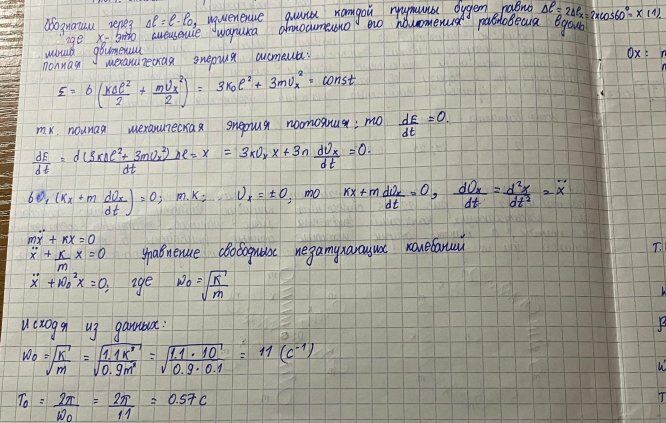 Обозначим через Δl = l - l₀, изменение длины каждой пружины будет равно Δl = 2Δlₓ = 2xcos60° = x (1)
где x - это смещение шарика относительно его положения равновесия вдоль
линии движения
полная механическая энергия системы:
E = 6 (kΔl²/2 + mυₓ²/2) = 3k₀l² + 3mυₓ² = const
т.к. полная механическая энергия постоянна; то dE/dt = 0.
dE/dt = d(3kΔl² + 3mυₓ²)/dt Δl = x = 3kυₓx + 3n dυₓ/dt = 0.
(kx + m dυₓ/dt) = 0; т.к. υₓ = ±0, то kx + m dυₓ/dt = 0, dυₓ/dt = d²x/dt² = ẍ
mẍ + kx = 0
ẍ + k/m x = 0 уравнение свободных незатухающих колебаний
ẍ + ω₀²x = 0, где ω₀ = √(k/m)
Исходя из данных:
ω₀ = √(k/m) = √(1.1k³/0.9m³) = √(1.1 · 10/0.9 · 0.1) = 11 (с⁻¹)
T₀ = 2π/ω₀ = 2π/11 = 0.57 с
Ox: